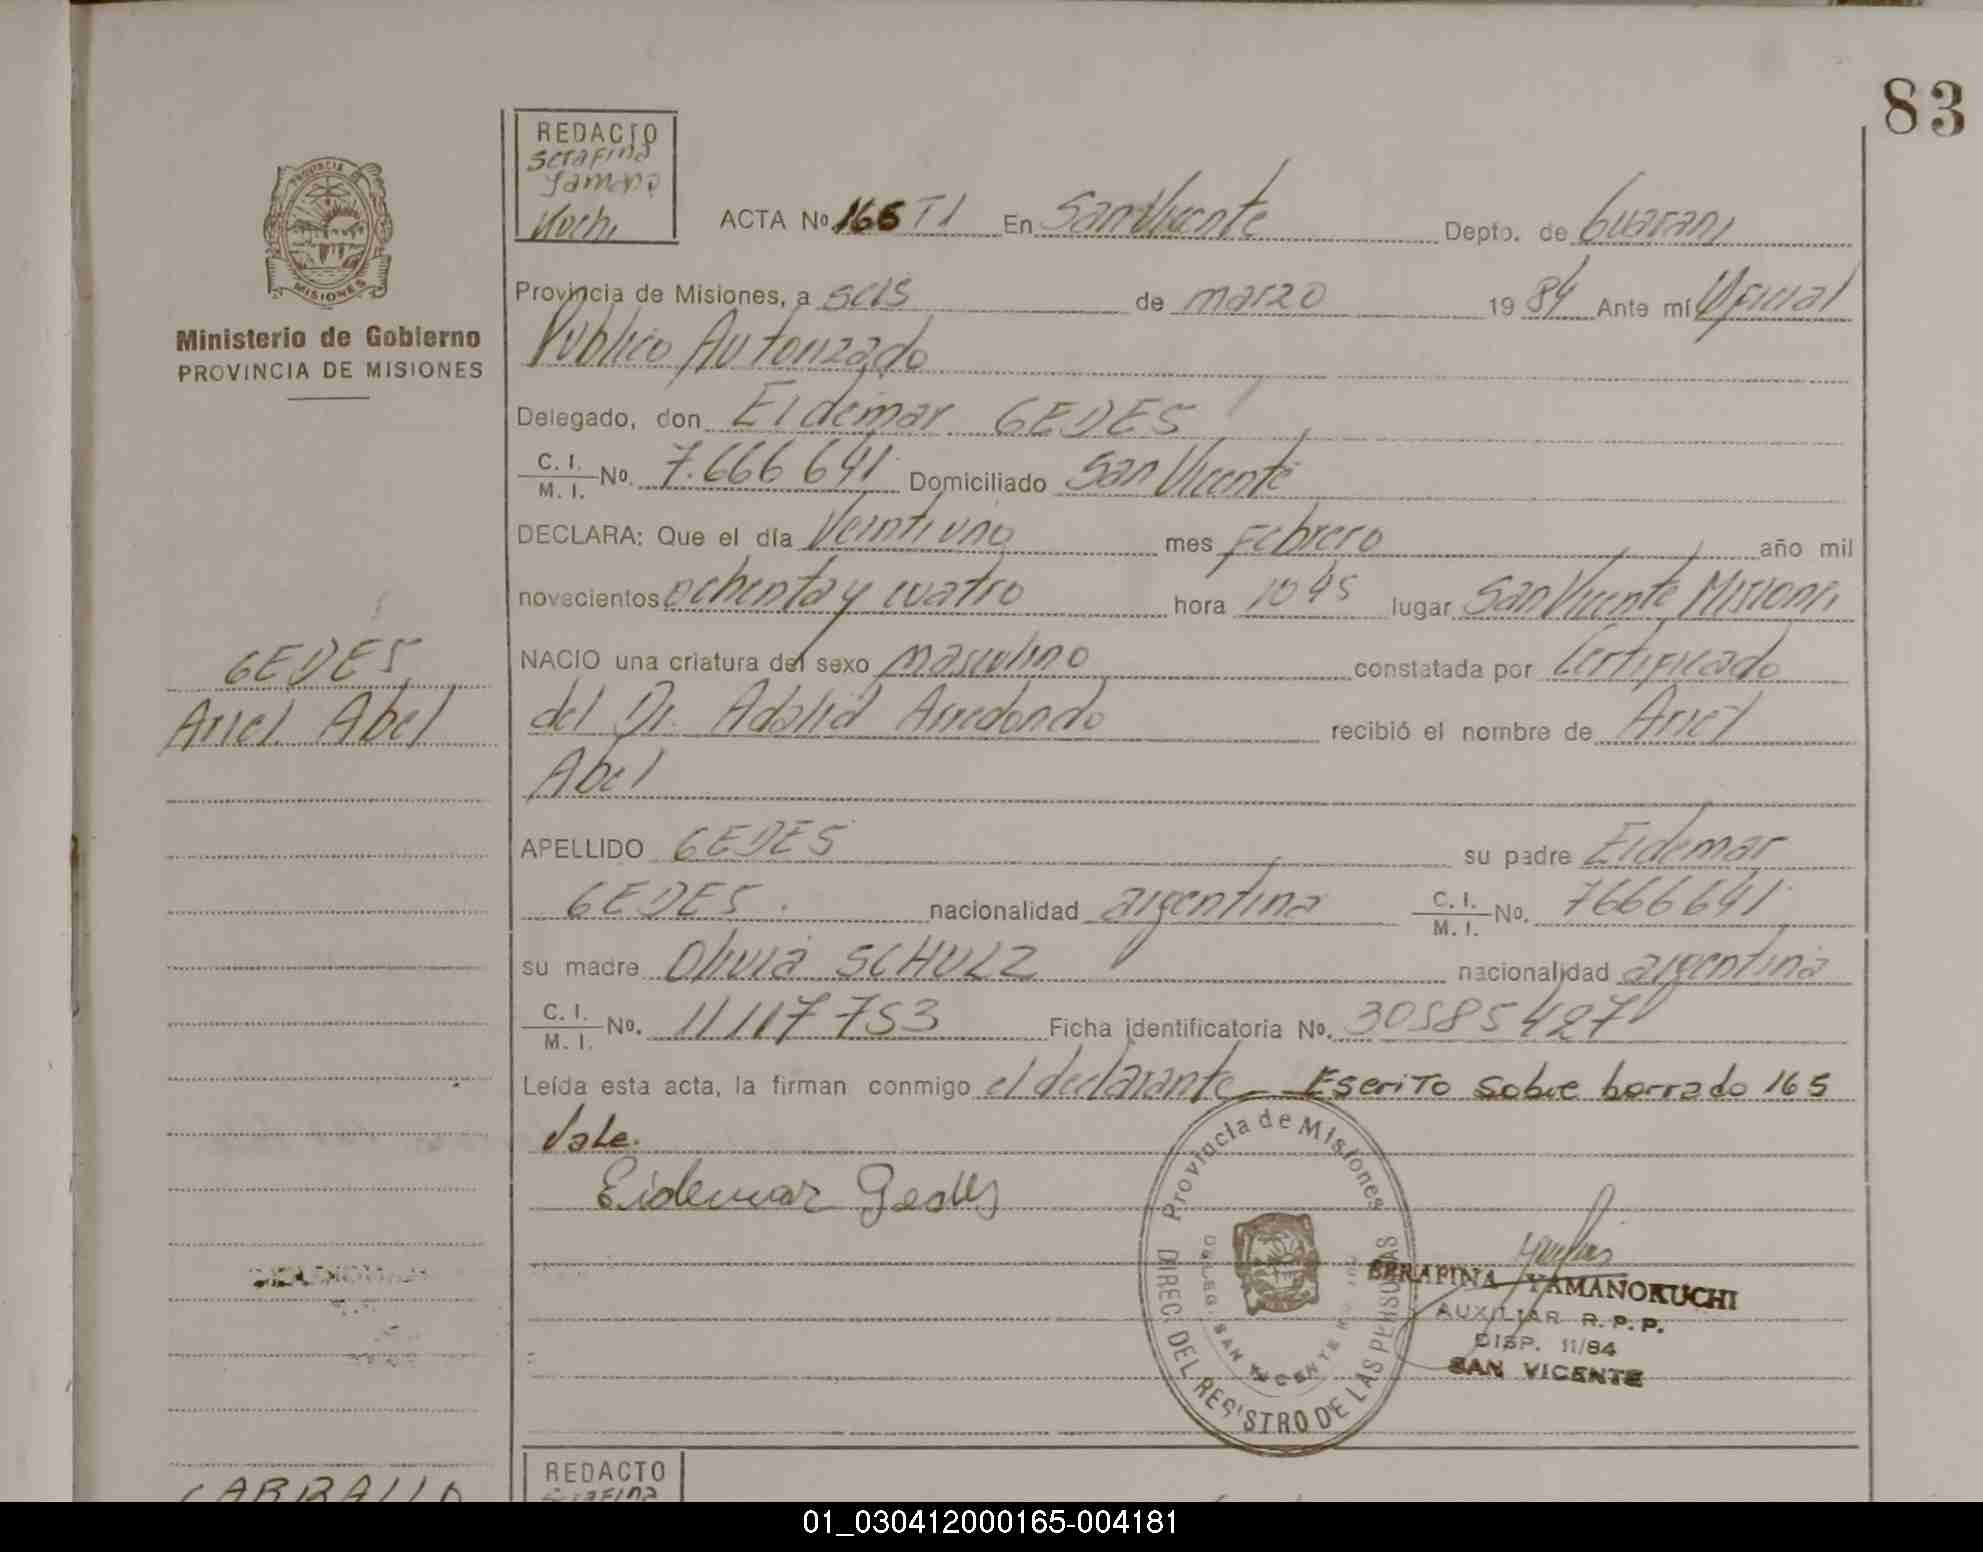 83
REDACTO
Serafina
Yamano
Kuchi
PROVINCIA DE
MISIONES
Ministerio de Gobierno
PROVINCIA DE MISIONES
ACTA Nº 165 T I En San Vicente Depto. de Guarani
Provincia de Misiones, a seis de marzo 19 84 Ante mí Oficial
Publico Autorizado
Delegado, don Eidemar GEDES
C. I. / M. I. Nº. 7.666 691 Domiciliado San Vicente
DECLARA: Que el día Veintiuno mes Febrero año mil
novecientos ochenta y cuatro hora 10 45 lugar San Vicente Misiones
NACIO una criatura del sexo masculino constatada por Certificado
del Dr. Adalid Arredondo recibió el nombre de Ariel
Abel
GEDES
Ariel Abel
APELLIDO GEDES su padre Eidemar
GEDES. nacionalidad argentina C. I. / M. I. Nº. 7666691
su madre Olivia SCHULZ nacionalidad argentina
C. I. / M. I. Nº. 11117 753 Ficha identificatoria Nº. 30585427
Leída esta acta, la firman conmigo el declarante Escrito sobre borrado 165
Vale.
Eidemar Gedes
Provincia de Misiones
DIREC. DEL REGISTRO DE LAS PERSONAS
DELEG. SAN VICENTE
SERAFINA YAMANOKUCHI
AUXILIAR R.P.P.
DISP. 11/84
SAN VICENTE
REDACTO
Serafina
CARBALLO
01_030412000165-004181